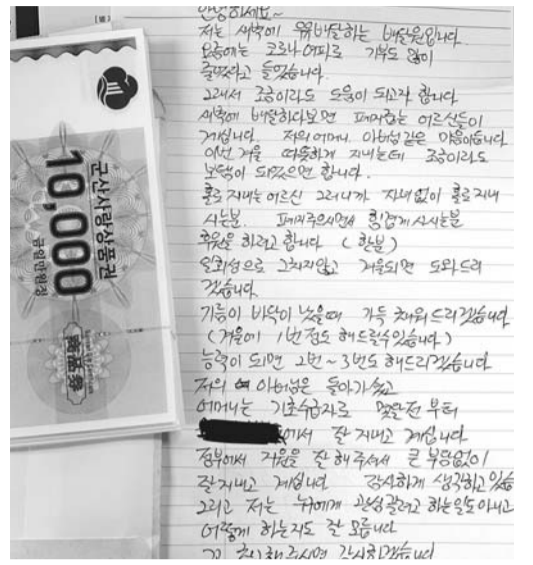 군산사랑상품권
10,000
금일만원권
안녕하세요~
저는 새벽에 우유배달하는 배달원입니다.
요즘에는 코로나 여파로 기부도 많이
줄었다고 들었습니다.
그래서 조금이라도 도움이 되고자 합니다
새벽에 배달하다보면 폐지줍는 어르신들이
계십니다. 저의 어머니, 아버님 같은 마음이듭니다
이번 겨울 따뜻하게 지내는데 조금이라도
보탬이 되었으면 합니다.
홀로 지내는 어르신 그러니까 자녀없이 홀로 지내
시는분. 폐지주으시면서 힘겹게 사시는분
후원을 하려고 합니다 (한분)
일회성으로 그치지않고 겨울되면 도와드리
겠습니다.
기름이 바닥이 났을때 가득 채워드리겠습니다
(겨울에 1번정도 해드릴수있습니다)
능력이 되면 2번~3번도 해드리겠습니다
저의 아버님은 돌아가셨고
어머니는 기초수급자로 몇달전 부터
에서 잘 지내고 계십니다
정부에서 지원을 잘 해주셔서 큰 부담없이
잘지내고 계십니다 감사하게 생각하고있습
그리고 저는 누구에게 관심끌려고 하는일도아니고
어떻게 하는지도 잘 모릅니다
해주시면 감사하겠습니다